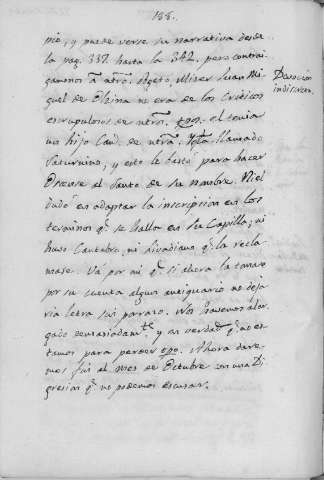 155.
pio, y puede verse su narrativa desde
la pag. 337. hasta la 342. pero contrai-
gamonos a ntro. objeto. Misser Juan Mi-
guel de Olzina no era de los Criticos
escrupulosos de ntro. tpo. el tenia
un hijo Cav. de ntra. llamado
Saturnino, y esto le bastó para hacer
Orense el Santo de su nombre. Ni el
dudó en adaptar la inscripcion en los
terminos q. se halla en su Capilla; ni
huvo Cantabro, ni Rivadiano q. la recla-
mase. Va por mi q. si ahora la tomase
por su cuenta algun antiquario no deja-
ria letra sin parrafo. Nos havemos alar-
gado demasiadamte. y en verdad q. no es-
tamos para perder tpo. Ahora dare-
mos fin al mes de Octubre con una Di-
gresion q. no podemos escusar.
Devocion
indiscreta.